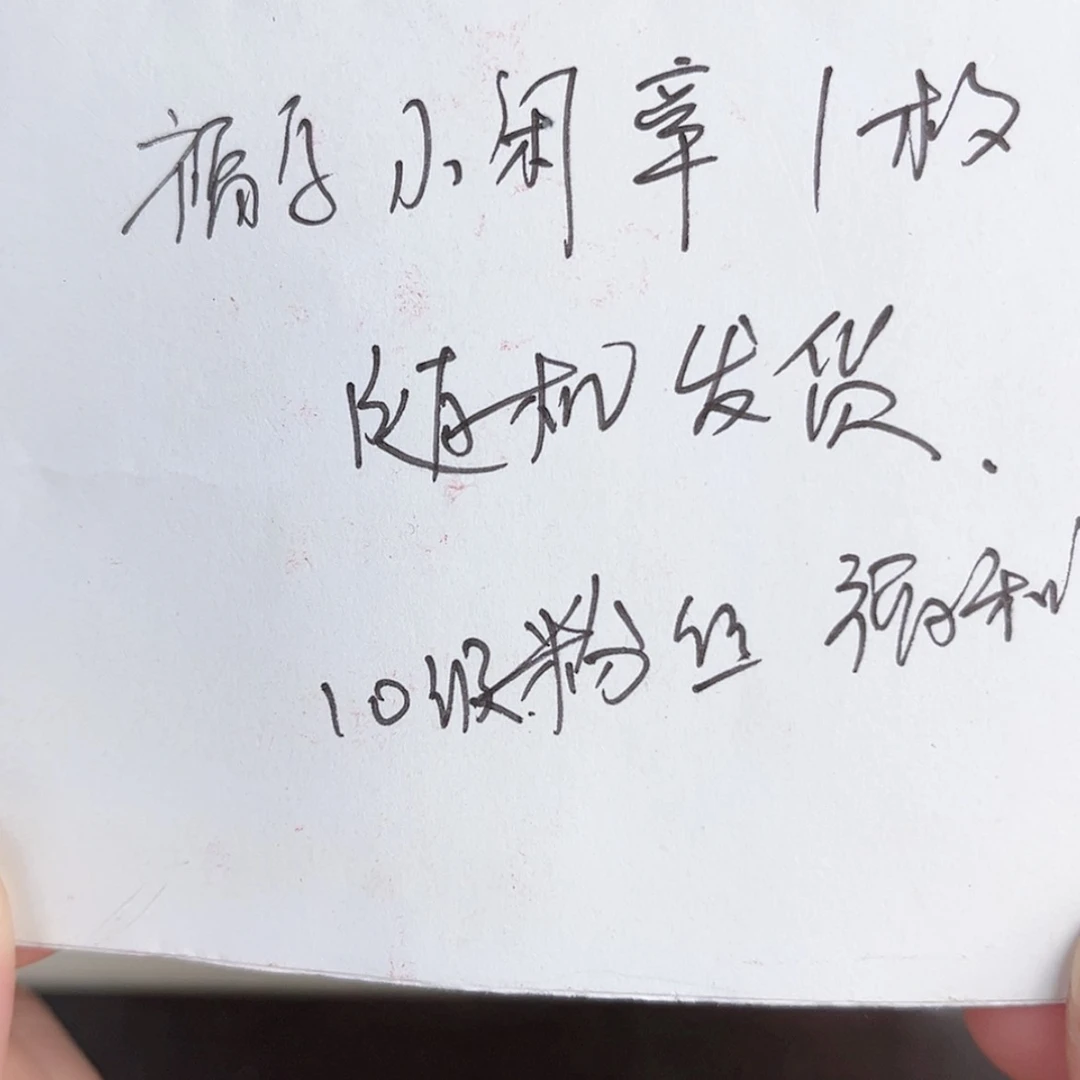 福字小闲章 1枚
随机发货.
10级粉丝 福利